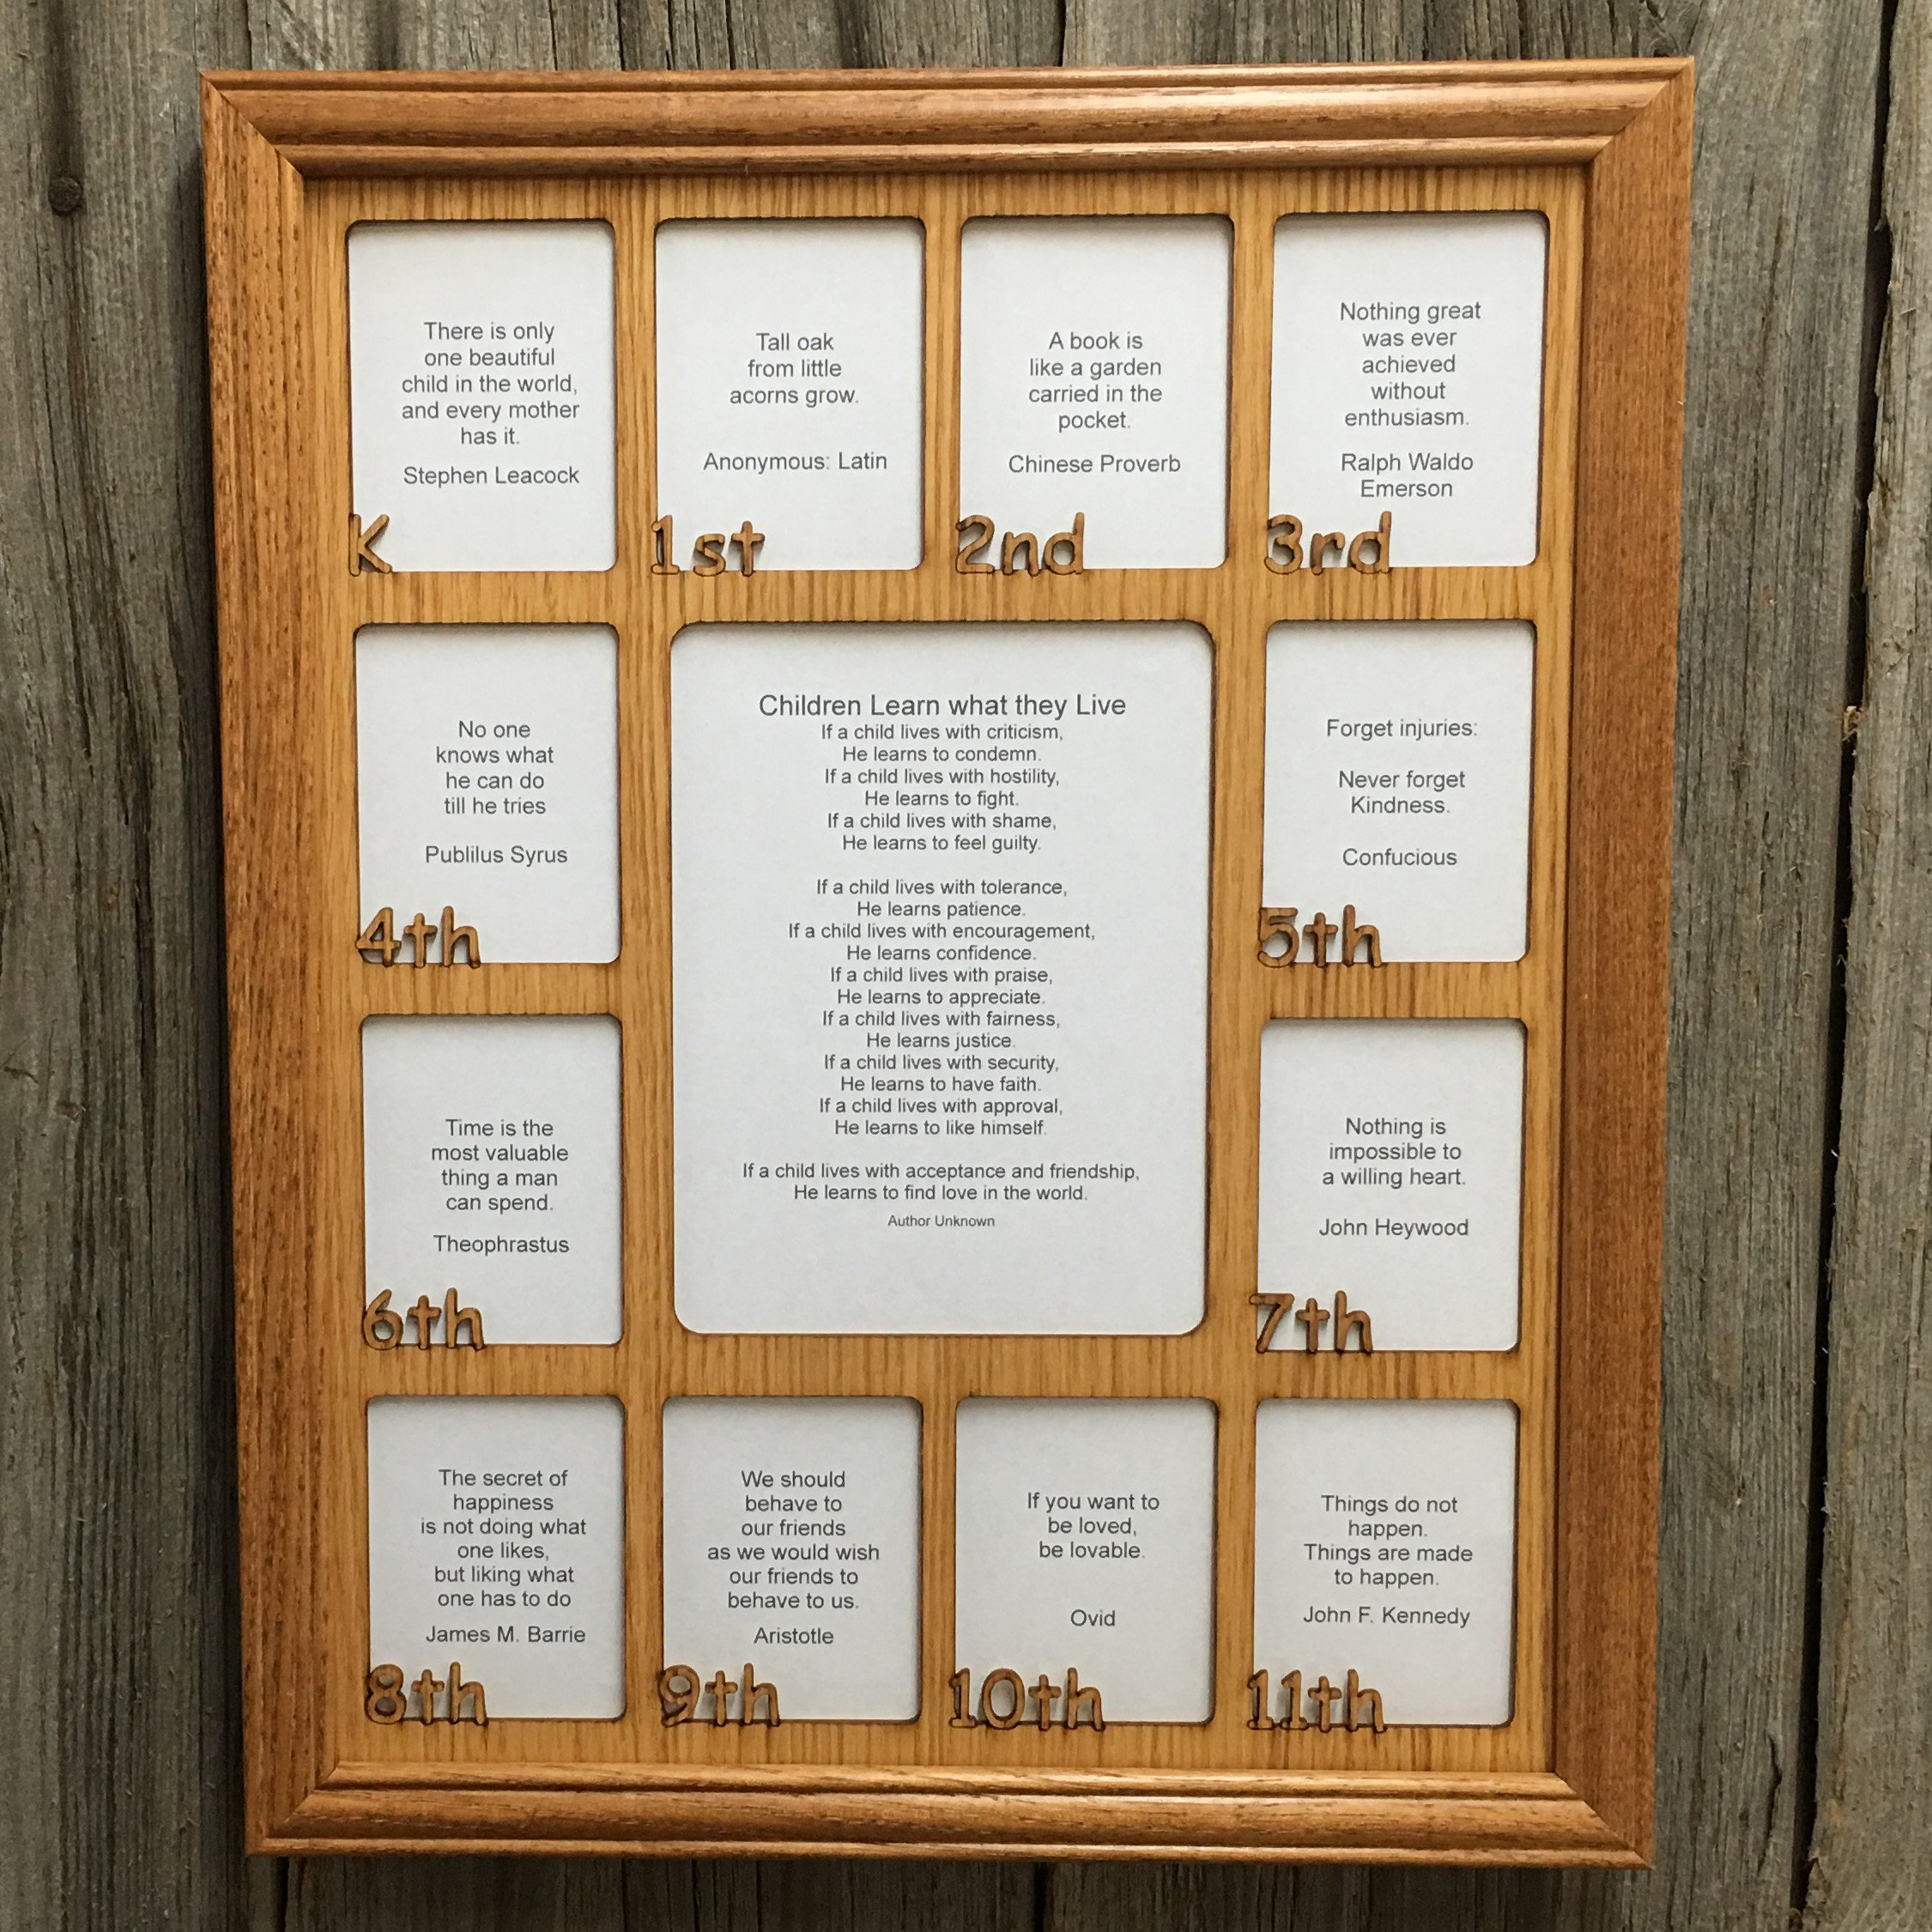 There is only
one beautiful
child in the world,
and every mother
has it.
Stephen Leacock
K
Tall oak
from little
acorns grow.
Anonymous: Latin
1st
A book is
like a garden
carried in the
pocket.
Chinese Proverb
2nd
Nothing great
was ever
achieved
without
enthusiasm.
Ralph Waldo
Emerson
3rd
No one
knows what
he can do
till he tries
Publilus Syrus
4th
Children Learn what they Live
If a child lives with criticism,
He learns to condemn.
If a child lives with hostility,
He learns to fight.
If a child lives with shame,
He learns to feel guilty.
If a child lives with tolerance,
He learns patience.
If a child lives with encouragement,
He learns confidence.
If a child lives with praise,
He learns to appreciate.
If a child lives with fairness,
He learns justice.
If a child lives with security,
He learns to have faith.
If a child lives with approval,
He learns to like himself.
If a child lives with acceptance and friendship,
He learns to find love in the world.
Author Unknown
Forget injuries:
Never forget
Kindness.
Confucious
5th
Time is the
most valuable
thing a man
can spend.
Theophrastus
6th
Nothing is
impossible to
a willing heart.
John Heywood
7th
The secret of
happiness
is not doing what
one likes,
but liking what
one has to do
James M. Barrie
8th
We should
behave to
our friends
as we would wish
our friends to
behave to us.
Aristotle
9th
If you want to
be loved,
be lovable.
Ovid
10th
Things do not
happen.
Things are made
to happen.
John F. Kennedy
11th